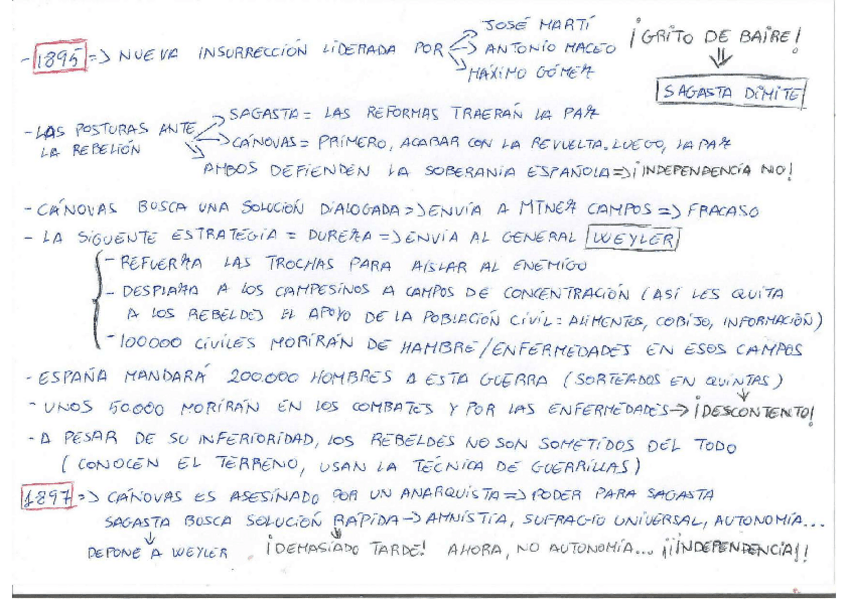 JOSÉ MARTÍ
- 1895 => NUEVA INSURRECCIÓN LIDERADA POR → ANTONIO MACEO ¡GRITO DE BAIRE!
MÁXIMO GÓMEZ
SAGASTA DIMITE
SAGASTA = LAS REFORMAS TRAERÁN LA PAZ
- LAS POSTURAS ANTE
LA REBELIÓN
CÁNOVAS = PRIMERO, ACABAR CON LA REVUELTA. LUEGO, LA PAZ
AMBOS DEFIENDEN LA SOBERANÍA ESPAÑOLA => ¡INDEPENDENCIA NO!
- CÁNOVAS BUSCA UNA SOLUCIÓN DIALOGADA => ENVÍA A MTNEZ CAMPOS => FRACASO
- LA SIGUENTE ESTRATEGIA = DUREZA => ENVÍA AL GENERAL WEYLER
- REFUERZA LAS TROCHAS PARA AISLAR AL ENEMIGO
- DESPLAZA A LOS CAMPESINOS A CAMPOS DE CONCENTRACIÓN (ASÍ LES QUITA
A LOS REBELDES EL APOYO DE LA POBLACIÓN CIVIL: ALIMENTOS, COBIJO, INFORMACIÓN)
- 100000 CIVILES MORIRÁN DE HAMBRE/ENFERMEDADES EN ESOS CAMPOS
- ESPAÑA MANDARÁ 200.000 HOMBRES A ESTA GUERRA (SORTEADOS EN QUINTAS)
- UNOS 50.000 MORIRÁN EN LOS COMBATES Y POR LAS ENFERMEDADES → ¡DESCONTENTO!
- A PESAR DE SU INFERIORIDAD, LOS REBELDES NO SON SOMETIDOS DEL TODO
(CONOCEN EL TERRENO, USAN LA TÉCNICA DE GUERRILLAS)
1897 => CÁNOVAS ES ASESINADO POR UN ANARQUISTA => PODER PARA SAGASTA
SAGASTA BUSCA SOLUCIÓN RÁPIDA → AMNISTÍA, SUFRAGIO UNIVERSAL, AUTONOMÍA...
DEPONE A WEYLER ¡DEMASIADO TARDE! AHORA, NO AUTONOMÍA... ¡¡INDEPENDENCIA!!